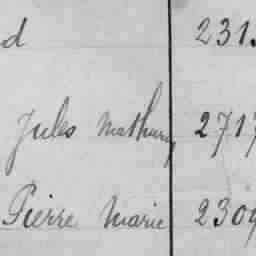 d 231.
Jules Mathurin 2717
Pierre Marie 2309